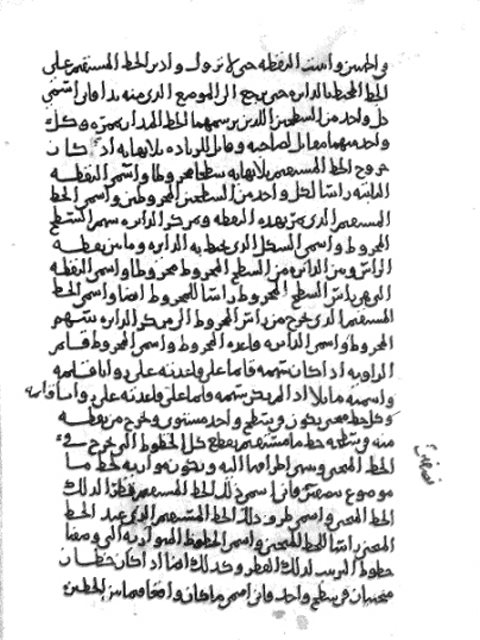 والجهتين واثبت النقطه حتى لا تزول وادير الخط المستقيم على
الخط المحيط بالدايره حتى يرجع الى الموضع الذي منه بدا فاني اسمي
كل واحد من السطحين اللذين يرسمهما الخط المدار بممره وكل
واحد منهما مقابل لصاحبه وقابل للزياده بلا نهايه اذ كان
خروج الخط المستقيم بلا نهايه سطحا مخروطا واسمي النقطه
الثابته راسا لكل واحد من السطحين المخروطين واسمي الخط
المستقيم الذي يمر بهذه النقطه وبمركز الدايره سهم السطح
المخروط واسمي الشكل الذي يحيط به الدايره وما بين نقطه
الراس وبين الدايره من السطح المخروط مخروطا واسمي النقطه
التي هي راس السطح المخروط راسا للمخروط ايضا واسمي الخط
المستقيم الذي يخرج من راس المخروط الى مركز الدايره سهم
المخروط واسمي الدايره قاعده المخروط واسمي المخروط قايم
الزاويه اذا كان سهمه قايما على قاعدته على زوايا قايمه
واسميه مايلا اذا لم يكن سهمه قايما على قاعدته على زوايا قايمه
وكل خط منحني يكون في سطح واحد مستوي وخرج من نقطه
منه في سطحه خط ما مستقيم يقطع كل الخطوط التي تخرج في
الخط المنحني وينتهي اطرافها اليه وتكون موازيه لخط ما
موضوع بنصفين فاني اسمي ذلك الخط المستقيم قطرا لذلك
الخط المنحني واسمي طرف ذلك الخط المستقيم الذي عند الخط
المنحني راسا للخط المنحني واسمي الخطوط المتوازيه التي وصفنا
خطوط الترتيب لذلك القطر وكذلك ايضا اذا كان خطان
منحنيان في سطح واحد فاني اسمي ما كان واقعا فيما بين الخطين